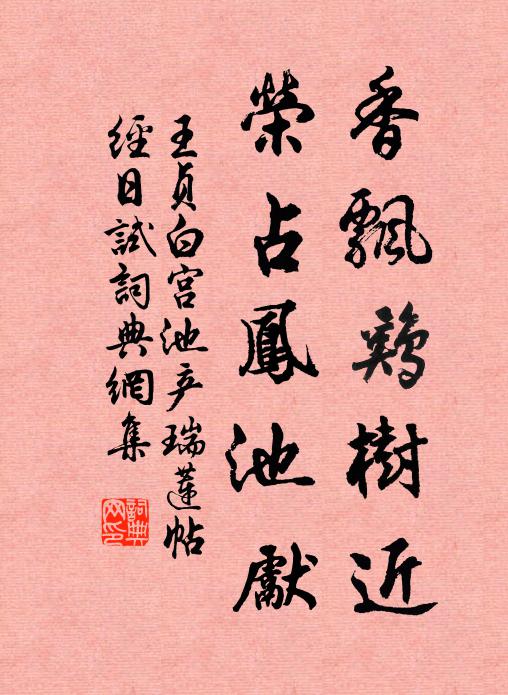 香飄鷄樹近
榮占鳳池獻
王貞白宫池产瑞蓮帖
經日試詞典網集
詞典
网印